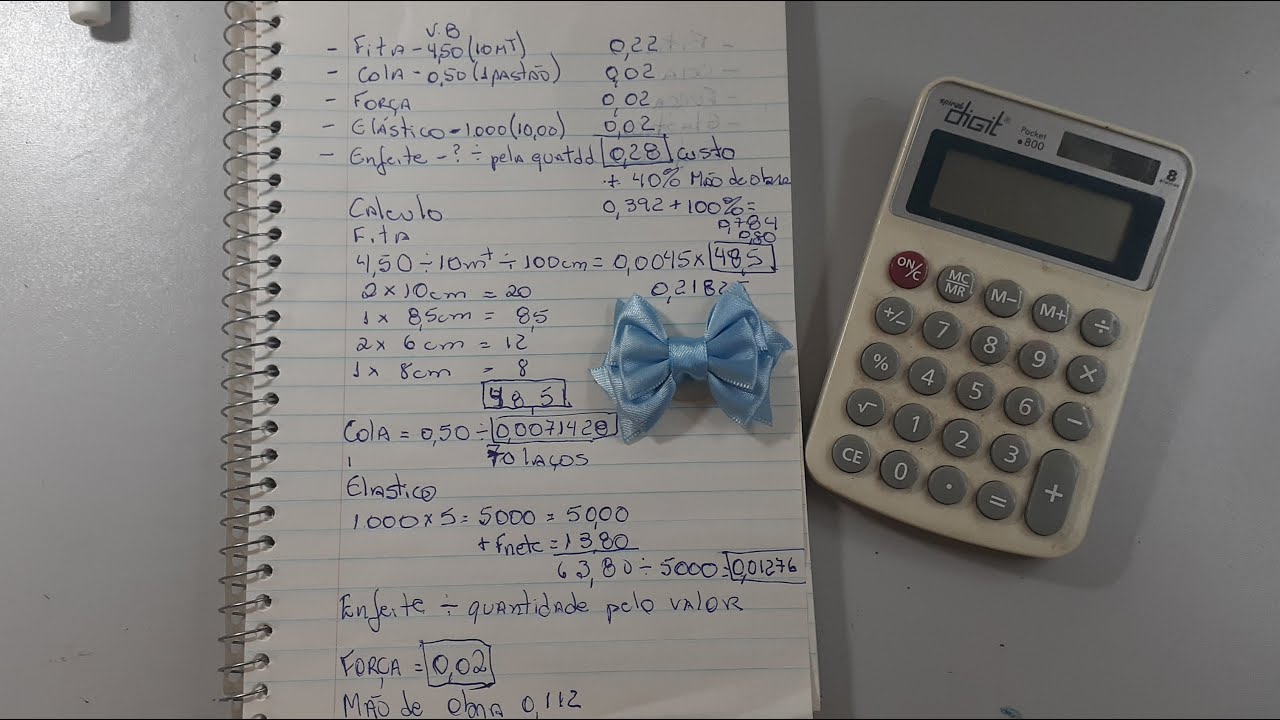 V.B
- Fita - 4,50 (10MT) 0,22
- Cola - 0,50 (1 pastão) 0,02
- Força 0,02
- Elástico - 1.000 (10,00) 0,02
- Enfeite - ? ÷ pela quatdd 0,28 custo
+ 40% Mão de obra
Calculo 0,392 + 100% =
0,784
Fita 0,80
4,50 ÷ 10mt ÷ 100cm = 0,0045 x 48,5
2 x 10cm = 20 0,2182
1 x 8,5cm = 8,5
2 x 6cm = 12
1 x 8cm = 8
48,5
Cola = 0,50 ÷ 0,0071428
70 laços
Elastico
1.000 x 5 = 5000 = 50,00
+ Frete = 13,80
63,80 ÷ 5000 = 0,01276
Enfeite ÷ quantidade pelo valor
Força = 0,02
Mão de obra 0,112
spiral digit
Pocket
800
8
ON/C MC/MR M− M+ ÷
+/− 7 8 9 ×
% 4 5 6 −
√ 1 2 3 +
CE 0 . =